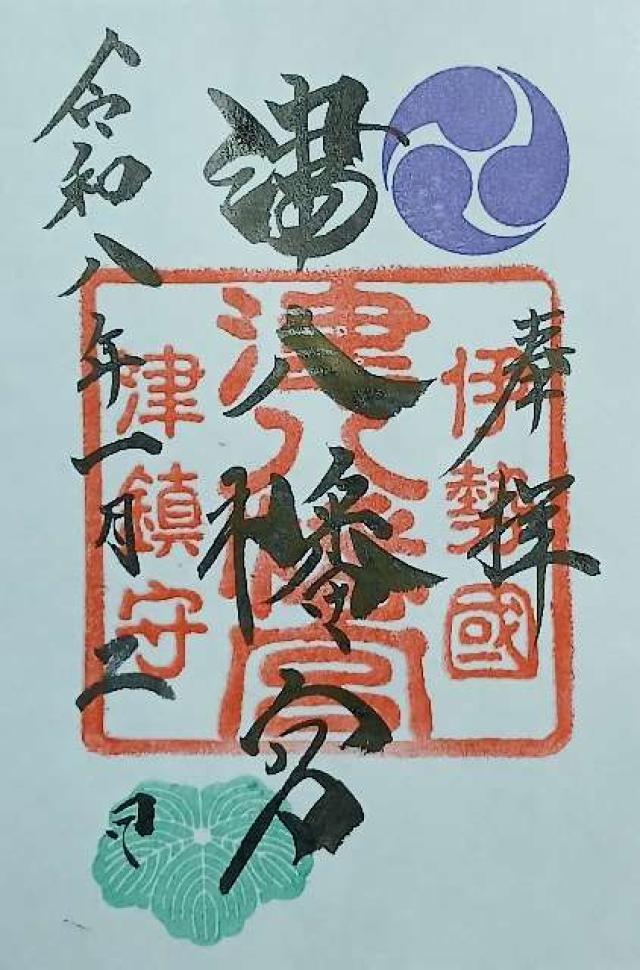 奉拝
伊勢國
津八幡宮
津八幡宮
津鎮守
令和八年一月二日